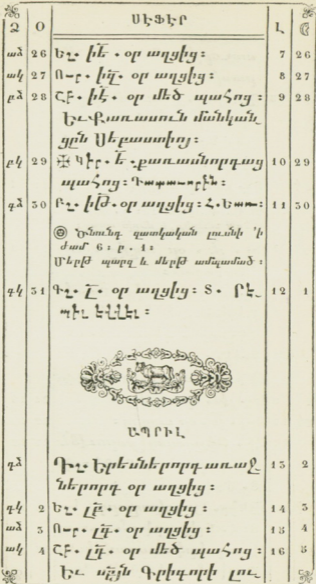 Ձ Օ ՍԷՖԷՐ Լ Ձ
ած 26 Եշ. իե. օր աղցից: 7 26
ակ 27 Ուր. իզ. օր աղցից: 8 27
բձ 28 Շբ. իէ. օր մեծ պահոց: 9 28
Եւ Քառասուն մանկան
ցըն Սեբաստիոյ:
բկ 29 ✠ Կիր. Ե. քառասնորդաց 10 29
պահոց:
գձ 30 Բշ. իթ. օր աղցից: 11 30
Ծնունդ զատկական լուսնի 'ի
ժամ 6: ր. 1:
Մերթ պարզ և մերթ ամպամած:
գկ 31 Գշ. Լ. օր աղցից: 12 1
ԱՊՐԻԼ
դձ Դշ Երեսներորդ առաջ 13 2
ներորդ օր աղցից:
դկ 2 Եշ. լբ. օր աղցից: 14 3
ած 3 Ուր. լգ. օր աղցից: 15 4
ակ 4 Շբ. լդ. օր մեծ պահոց: 16 5
Եւ Գրիգորի լու